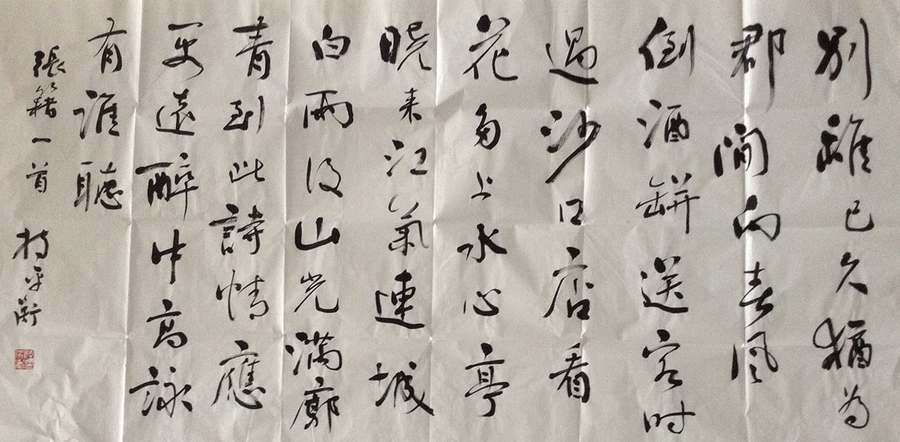 別離已久猶為
郡閒向春風
倒酒缾送客时
過沙口店看
花多上水心亭
曉来江氣連城
白雨後山光滿廓
青到此詩情應
更遠醉中高詠
有誰聽
張籍一首 持平